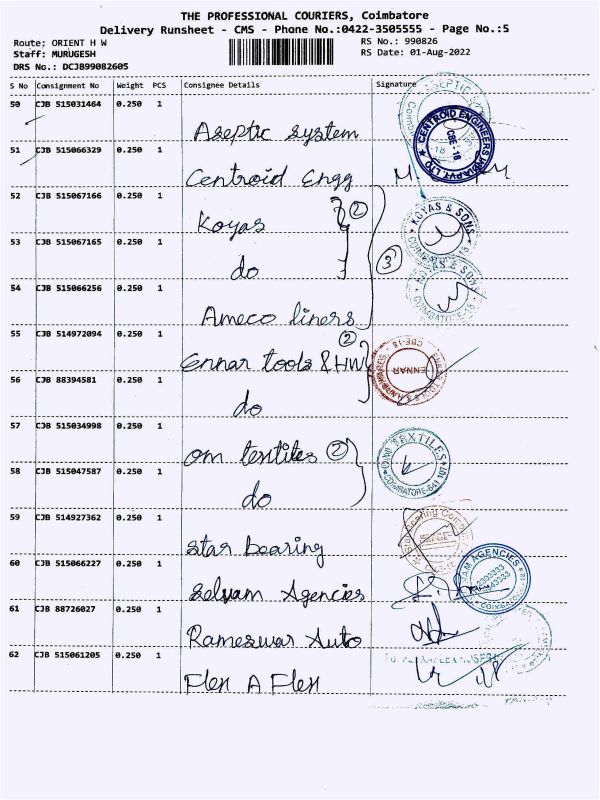 THE PROFESSIONAL COURIERS, Coimbatore
Delivery Runsheet - CMS - Phone No.:0422-3505555 - Page No.:5
Route; ORIENT H W
RS No.: 990826
Staff: MURUGESH
RS Date: 01-Aug-2022
DRS No.: DCJB99082605
S No Consignment No Weight PCS Consignee Details Signature
50 CJB 515031464 0.250 1
Aseptic system
51 CJB 515066329 0.250 1
Centroid Engg
CENTROID ENGINEERS
CBE - 18
52 CJB 515067166 0.250 1
Koyas 2
KOYAS & SONS
53 CJB 515067165 0.250 1
do 3
54 CJB 515066256 0.250 1
Ameco liners
COIMBATORE-18
55 CJB 514972094 0.250 1
Ennar tools & HW 2
CBE-18
ENNAR
56 CJB 88394581 0.250 1
do
57 CJB 515034998 0.250 1
om textiles 2
OM TEXTILES
COIMBATORE-641 107
58 CJB 515047587 0.250 1
do
59 CJB 514927362 0.250 1
Star bearing
60 CJB 515066227 0.250 1
Selvam Agencies
AGENCIES
61 CJB 88726027 0.250 1
Rameswar Auto
62 CJB 515061205 0.250 1
Flex A Flex